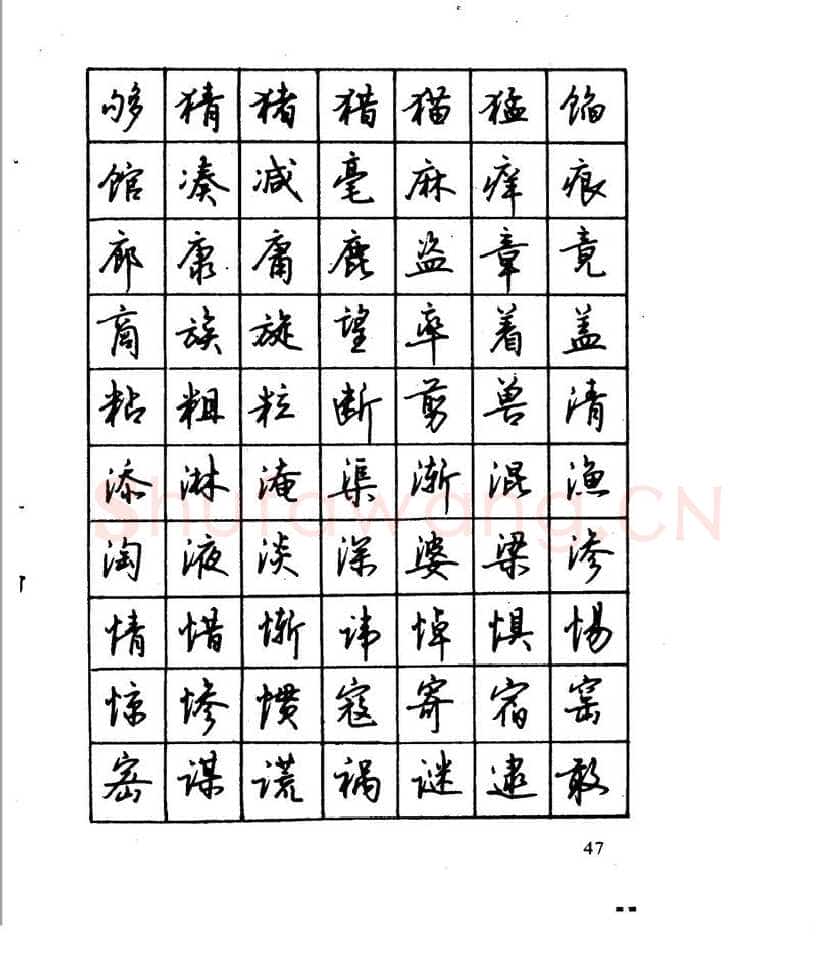 够 猜 猪 猎 猫 猛 馅
馆 凑 减 毫 麻 痒 痕
廊 康 庸 鹿 盗 章 竟
商 族 旋 望 率 着 盖
粘 粗 粒 断 剪 兽 清
添 淋 淹 渠 渐 混 渔
淘 液 淡 深 婆 梁 渗
情 惜 惭 悼 惧 惕
惊 惨 惯 寇 寄 宿 窑
密 谋 谎 祸 谜 逮 敢
Shufawang.CN
47